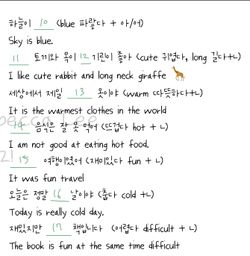 하늘이 10 (blue 파랗다 + 아/어)
Sky is blue.
11 토끼와 목이 12 기린이 좋아 (cute 귀엽다, long 길다+ㄴ)
I like cute rabbit and long neck giraffe 🦒
세상에서 제일 13 옷이야 (warm 따뜻하다+ㄴ)
It is the warmest clothes in the world
14 음식은 잘 못 먹어 (뜨겁다 hot + ㄴ)
I am not good at eating hot food.
15 여행이었어 (재미있다 fun + ㄴ)
It was fun travel
오늘은 정말 16 날이야 (춥다 cold +ㄴ)
Today is really cold day.
재밌지만 17 책입니다 (어렵다 difficult + ㄴ)
The book is fun at the same time difficult